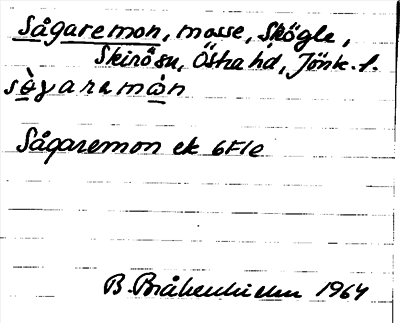 Sågaremon, mosse, Skögle,
Skirö sn, Östra hd, Jönk. l.
sɷ̀garɑmɷ̀n
Sågaremon ek 6F1e
B. Bråkenhielm 1964